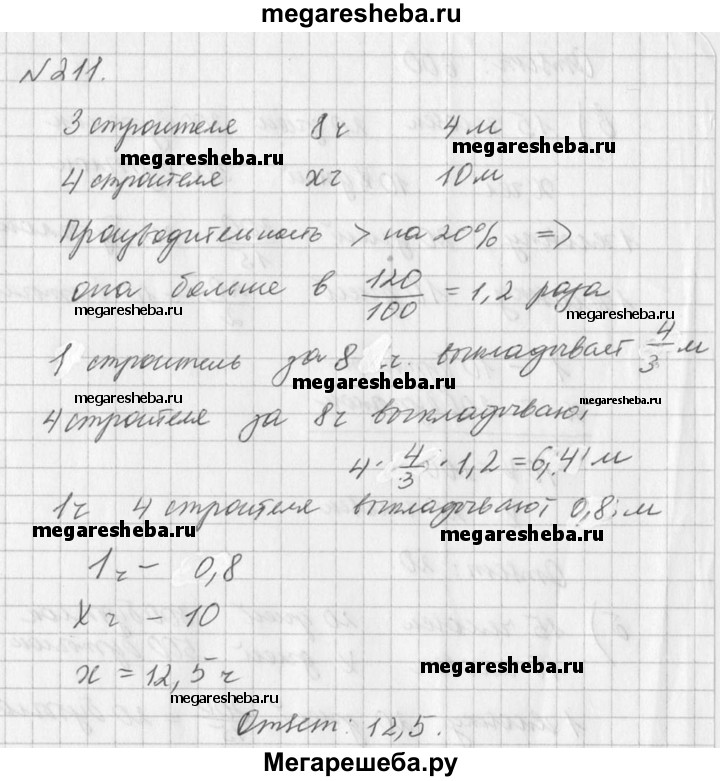 megaresheba.ru
№211.
3 строителя 8ч 4м
megaresheba.ru megaresheba.ru
4 строителя xч 10м
Производительность > на 20% =>
она больше в 120/100 = 1,2 раза
megaresheba.ru megaresheba.ru
1 строитель за 8 ч. выкладывает 4/3 м
megaresheba.ru megaresheba.ru
4 строителя за 8ч выкладывают
4 · 4/3 · 1,2 = 6,4 м
megaresheba.ru megaresheba.ru
1ч 4 строителя выкладывают 0,8 м
megaresheba.ru megaresheba.ru
1ч – 0,8
xч – 10
x = 12,5 ч
megaresheba.ru megaresheba.ru
Ответ: 12,5.
Мегарешеба.ру